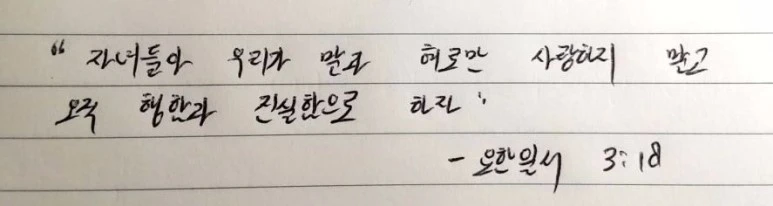 “ 자녀들아 우리가 말과 혀로만 사랑하지 말고
오직 행함과 진실함으로 하자 ”
- 요한일서 3:18